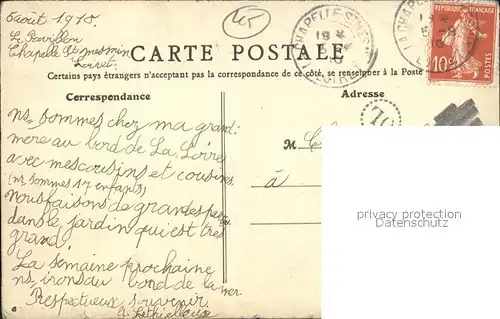 5 août 1910.
45
Le Pavillon
Chapelle St Mesmin
Loiret.
CARTE POSTALE
RÉPUBLIQUE FRANÇAISE
10c
POSTES
Certains pays étrangers n'acceptent pas la correspondance de ce côté, se renseigner à la Poste
Correspondance
Adresse
M
à
ns. sommes chez ma grand'
mère au bord de La Loire
avec mes cousins et cousines.
(ns sommes 17 enfants)
Nous faisons de grandes parties
dans le jardin qui est très
grand.
La semaine prochaine
ns. irons au bord de la mer.
Respectueux souvenir.
privacy protection
Datenschutz